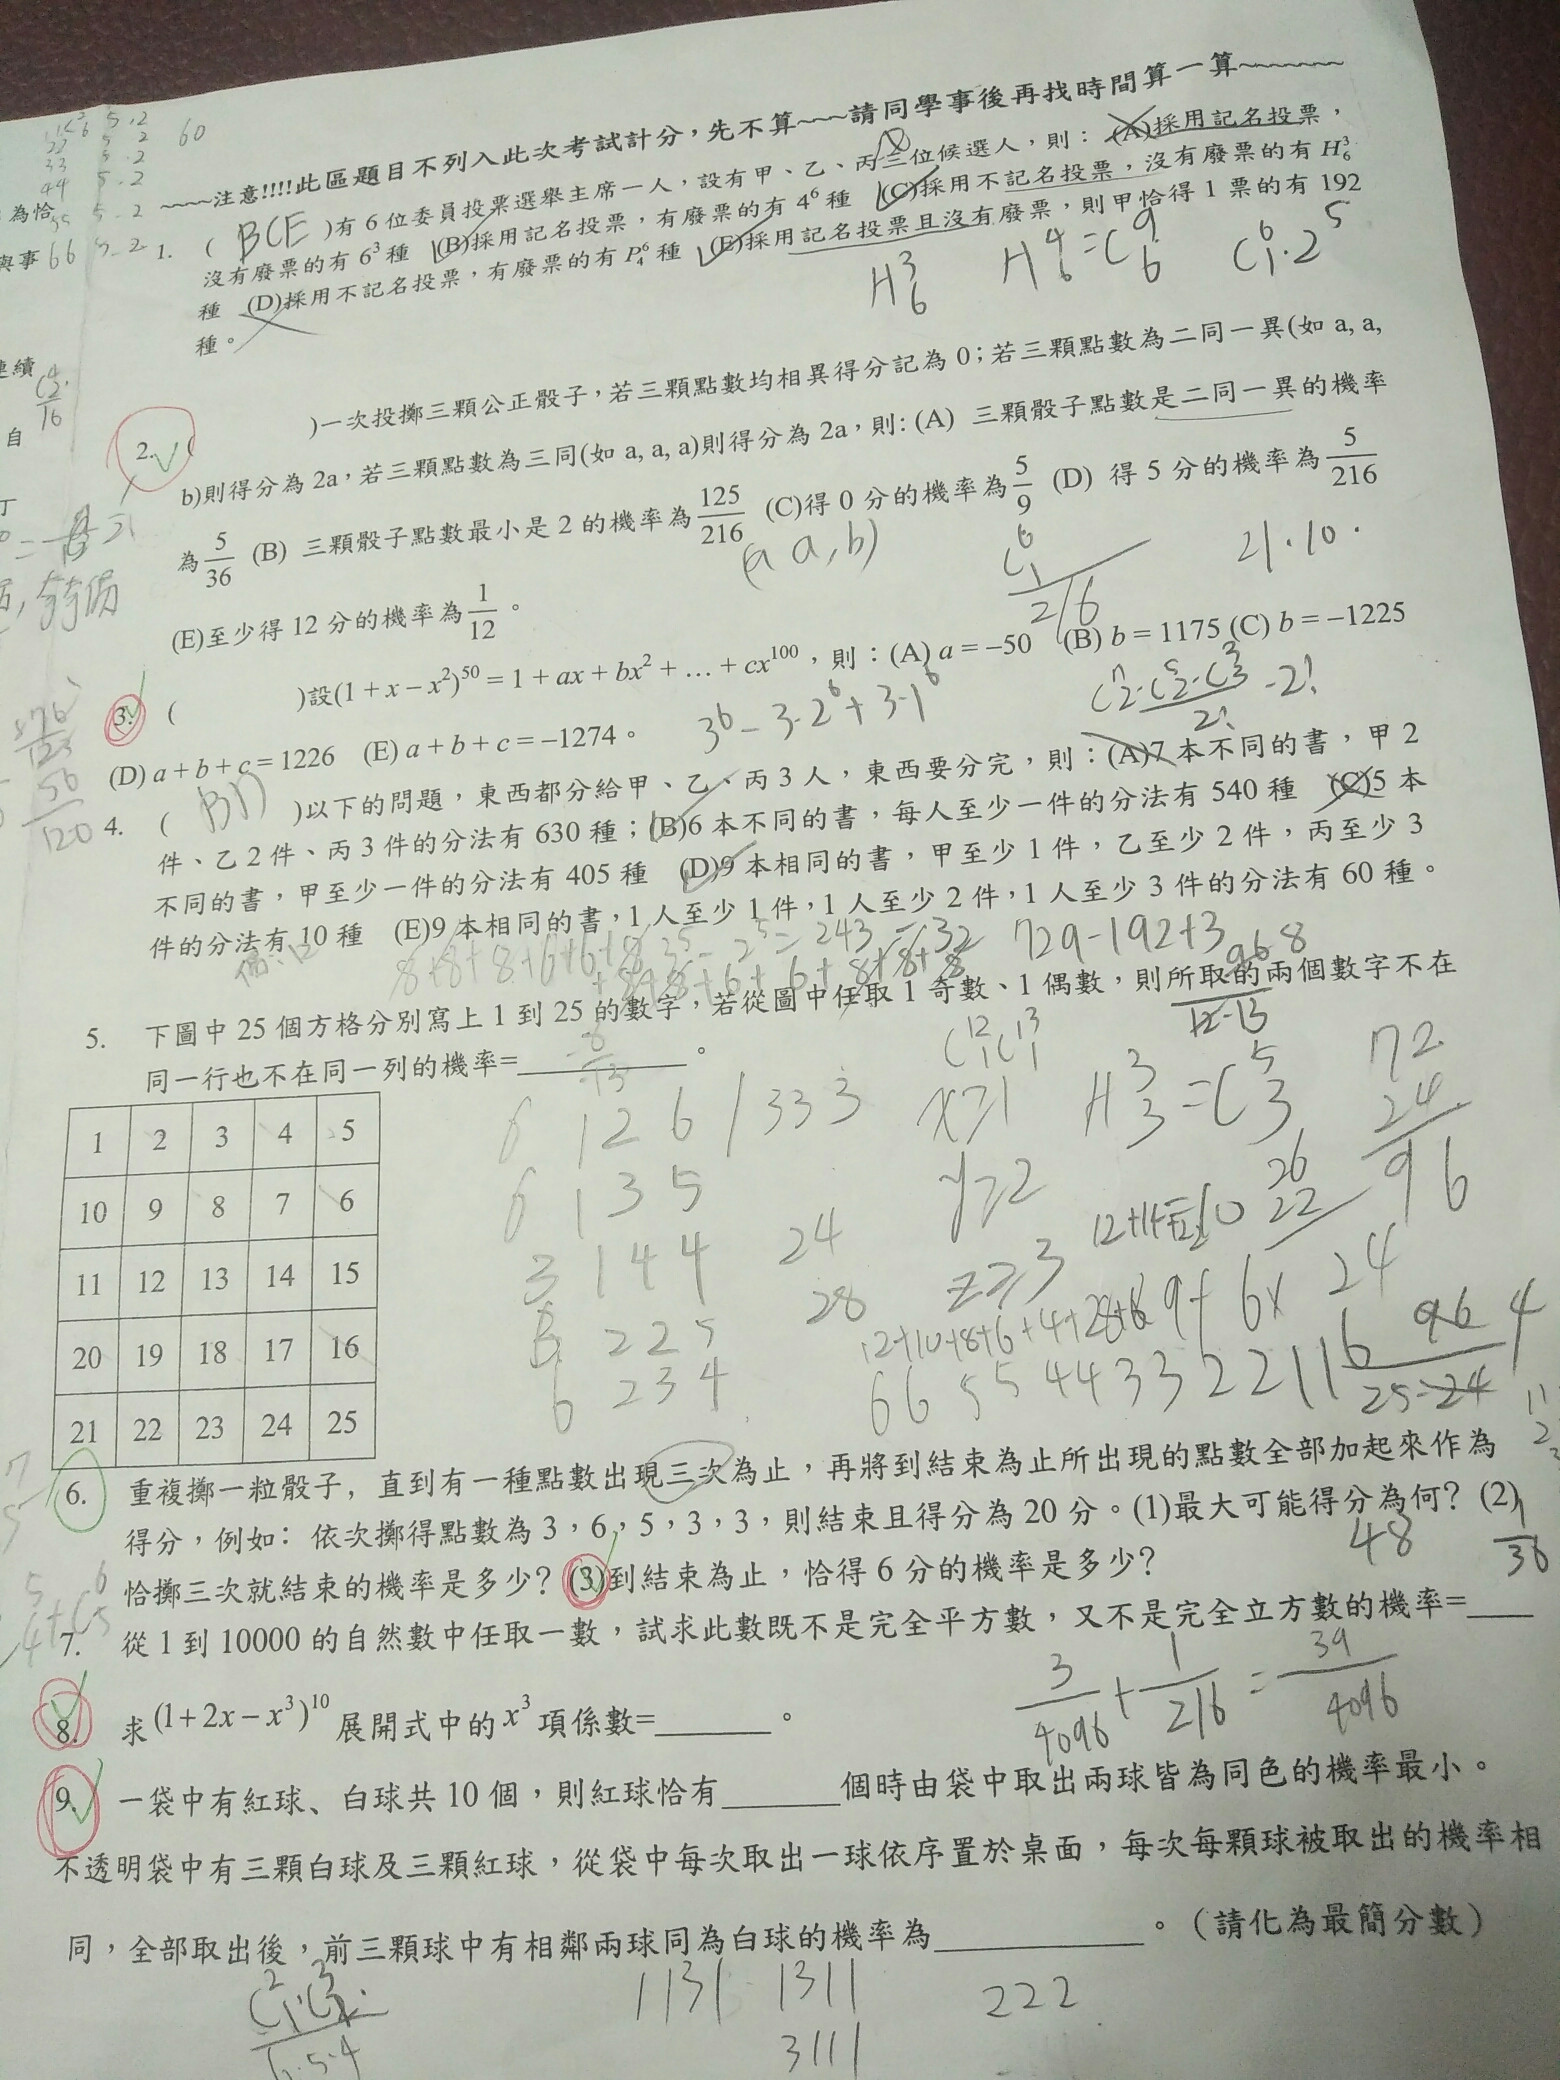 ~~~~注意!!!!此區題目不列入此次考試計分，先不算~~~請同學事後再找時間算一算~~~~~~~
1. ( BCE )有 6 位委員投票選舉主席一人，設有甲、乙、丙三位候選人，則：(A)採用記名投票，
沒有廢票的有 6³ 種 (B)採用記名投票，有廢票的有 4⁶ 種 (C)採用不記名投票，沒有廢票的有 H³₆
種 (D)採用不記名投票，有廢票的有 P⁶₄ 種 (E)採用記名投票且沒有廢票，則甲恰得 1 票的有 192
種。
H³₆ H⁴₆=C⁹₆ C⁶₁·2⁵
2. ( )一次投擲三顆公正骰子，若三顆點數均相異得分記為 0；若三顆點數為二同一異(如 a, a,
b)則得分為 2a，若三顆點數為三同(如 a, a, a)則得分為 2a，則: (A) 三顆骰子點數是二同一異的機率
為 5/36 (B) 三顆骰子點數最小是 2 的機率為 125/216 (C)得 0 分的機率為 5/9 (D) 得 5 分的機率為 5/216
(a a, b)
21·10·
(E)至少得 12 分的機率為 1/12。
3. ( )設(1 + x − x²)⁵⁰ = 1 + ax + bx² + … + cx¹⁰⁰，則：(A) a = −50 (B) b = 1175 (C) b = −1225
(D) a + b + c = 1226 (E) a + b + c = −1274。
3⁶ − 3·2⁶ + 3·1⁶
4. ( BD )以下的問題，東西都分給甲、乙、丙 3 人，東西要分完，則：(A)7 本不同的書，甲 2
件、乙 2 件、丙 3 件的分法有 630 種；(B)6 本不同的書，每人至少一件的分法有 540 種 (C)5 本
不同的書，甲至少一件的分法有 405 種 (D)9 本相同的書，甲至少 1 件，乙至少 2 件，丙至少 3
件的分法有 10 種 (E)9 本相同的書，1 人至少 1 件，1 人至少 2 件，1 人至少 3 件的分法有 60 種。
729−192+3
5. 下圖中 25 個方格分別寫上 1 到 25 的數字，若從圖中任取 1 奇數、1 偶數，則所取的兩個數字不在
同一行也不在同一列的機率=________。
1 2 3 4 5
10 9 8 7 6
11 12 13 14 15
20 19 18 17 16
21 22 23 24 25
6 1 2 6 / 3 3 3
6 1 3 5
3 1 4 4
2 2 5
6 2 3 4
x≥1
y≥2
z≥3
H³₃=C⁵₃
72
24
96
24
28
66 55 44 33 22 11
6. 重複擲一粒骰子，直到有一種點數出現三次為止，再將到結束為止所出現的點數全部加起來作為
得分，例如：依次擲得點數為 3，6，5，3，3，則結束且得分為 20 分。(1)最大可能得分為何？(2)
恰擲三次就結束的機率是多少？(3)到結束為止，恰得 6 分的機率是多少？
48
1/36
7. 從 1 到 10000 的自然數中任取一數，試求此數既不是完全平方數，又不是完全立方數的機率=____
3/4096 + 1/216 = 39/4096
8. 求 (1 + 2x − x³)¹⁰ 展開式中的 x³ 項係數=______。
9. 一袋中有紅球、白球共 10 個，則紅球恰有______個時由袋中取出兩球皆為同色的機率最小。
不透明袋中有三顆白球及三顆紅球，從袋中每次取出一球依序置於桌面，每次每顆球被取出的機率相
同，全部取出後，前三顆球中有相鄰兩球同為白球的機率為__________。（請化為最簡分數）
1131 1311 222
3111